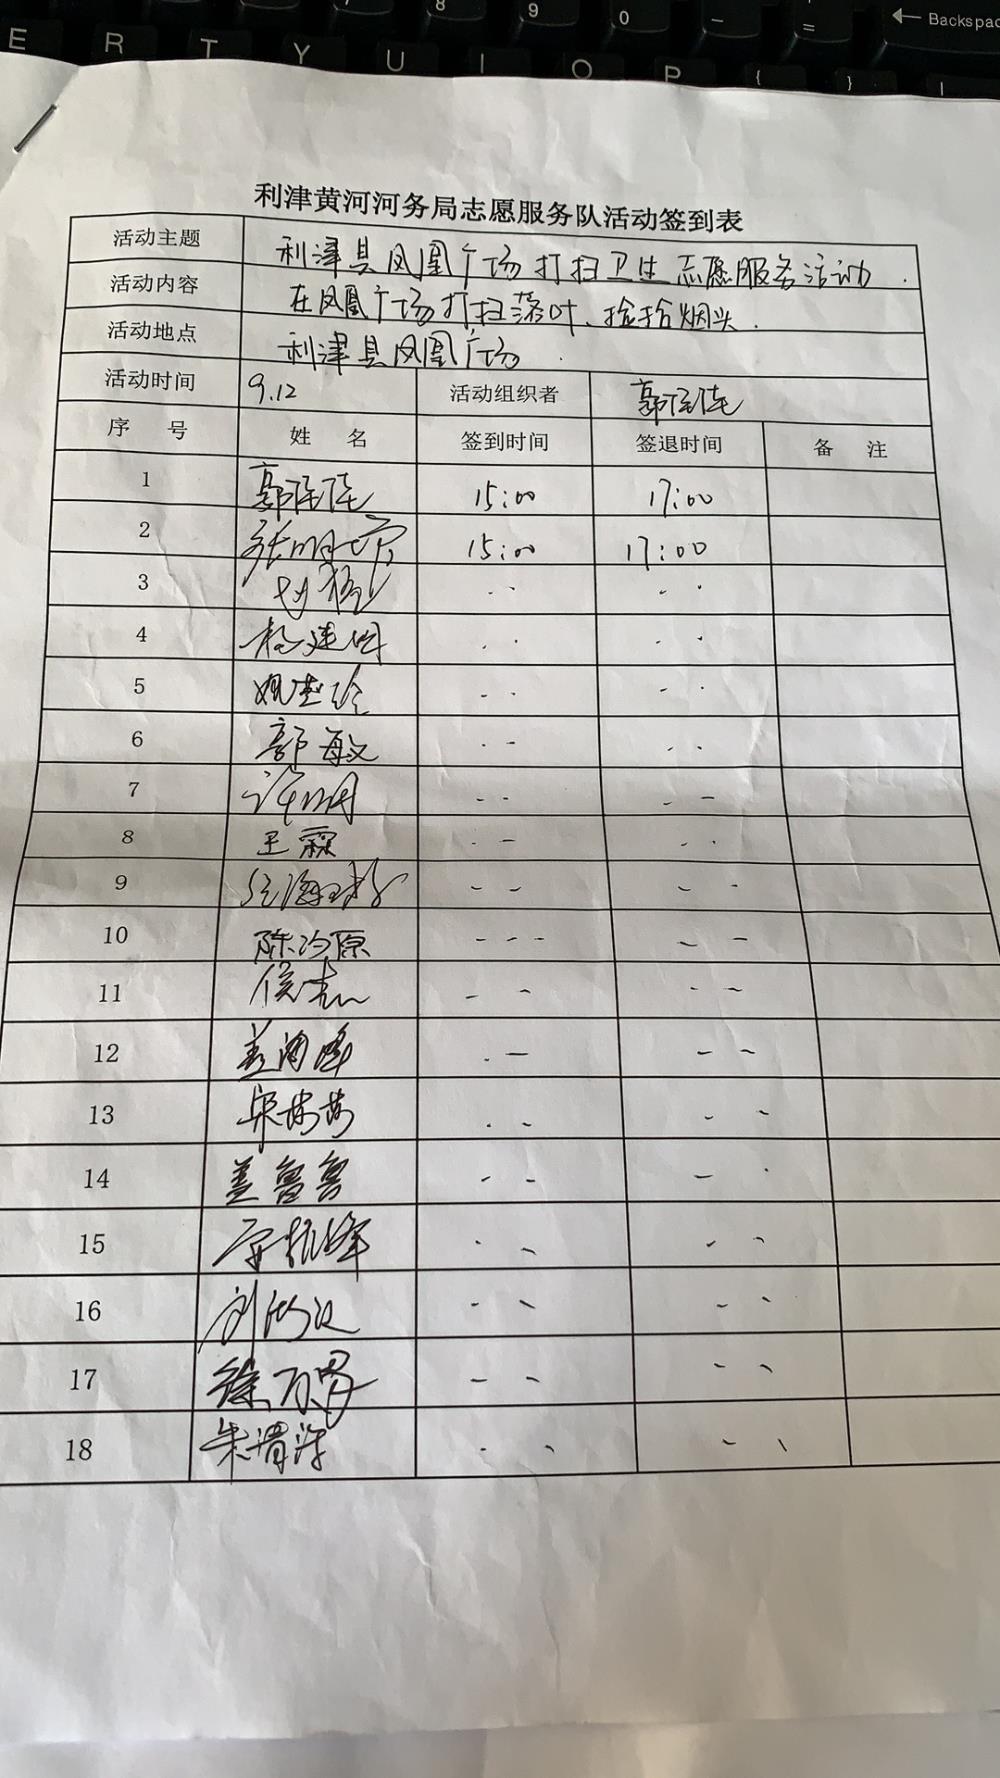 8 9 0 - = Backspac
E R T Y U I O P { } |
利津黄河河务局志愿服务队活动签到表
活动主题 利津县凤凰广场打扫卫生志愿服务活动.
活动内容 在凤凰广场打扫落叶、捡拾烟头.
活动地点 利津县凤凰广场.
活动时间 9.12 活动组织者 郭佳佳
序 号 姓 名 签到时间 签退时间 备 注
1 郭佳佳 15:00 17:00
2 15:00 17:00
3
4 杨建国
5
6 郭敏
7 许明
8 王霖
9
10 陈汐原
11 侯杰
12 盖海峰
13
14 盖鲁鲁
15
16
17
18